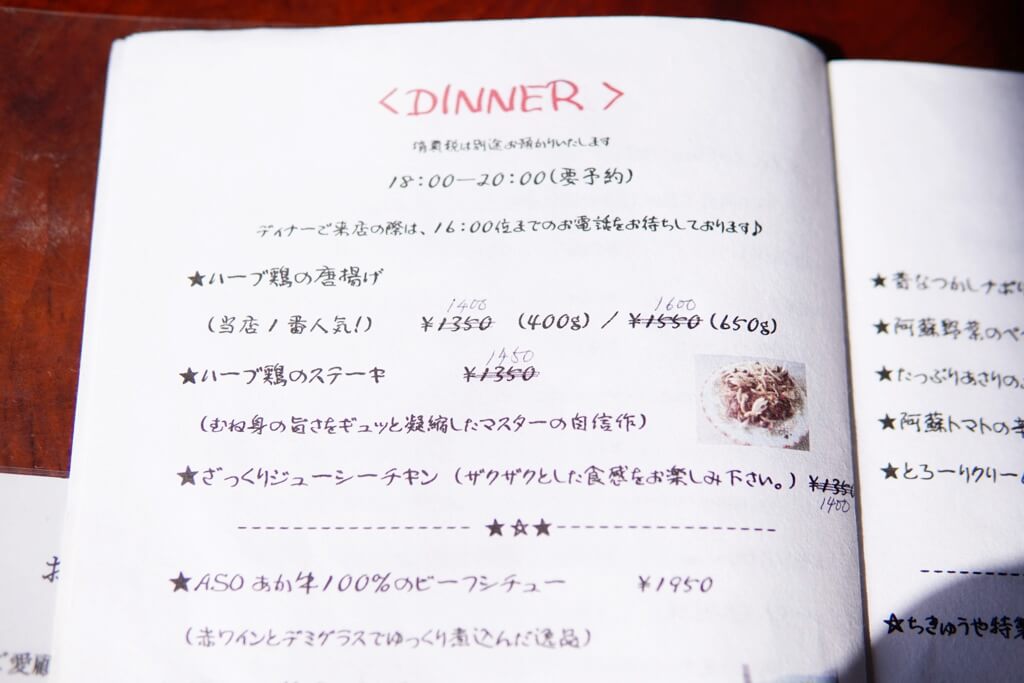 <DINNER>
消費税は別途お預かりいたします
18:00―20:00(要予約)
ディナーご来店の際は、16:00位までのお電話をお待ちしております♪
★ハーブ鶏の唐揚げ
1400 1600
(当店1番人気!) ¥1350 (400g) / ¥1550 (650g)
1450
★ハーブ鶏のステーキ ¥1350
(むね身の旨さをギュッと凝縮したマスターの自信作)
★ざっくりジューシーチキン (ザクザクとした食感をお楽しみ下さい。) ¥1350
1400
★☆★
★ASOあか牛100%のビーフシチュー ¥1950
(赤ワインとデミグラスでゆっくり煮込んだ逸品)
★昔なつかしナポリ
★阿蘇野菜のペ
★たっぷりあさりの
★阿蘇トマトの
★とろーりクリー
☆ちきゅうや特製
お
ご愛顧